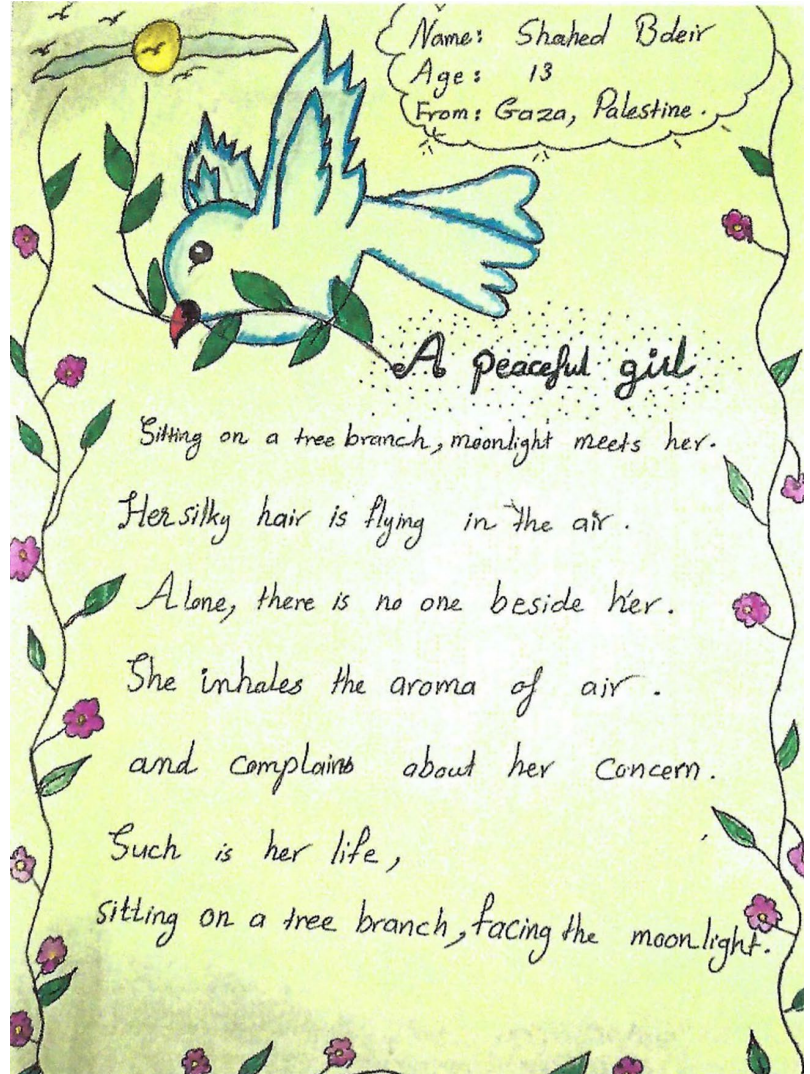 Name: Shahed Bdeir
Age: 13
From: Gaza, Palestine.
A peaceful girl
Sitting on a tree branch, moonlight meets her.
Her silky hair is flying in the air.
Alone, there is no one beside her.
She inhales the aroma of air.
and complains about her concern.
Such is her life,
sitting on a tree branch, facing the moonlight.